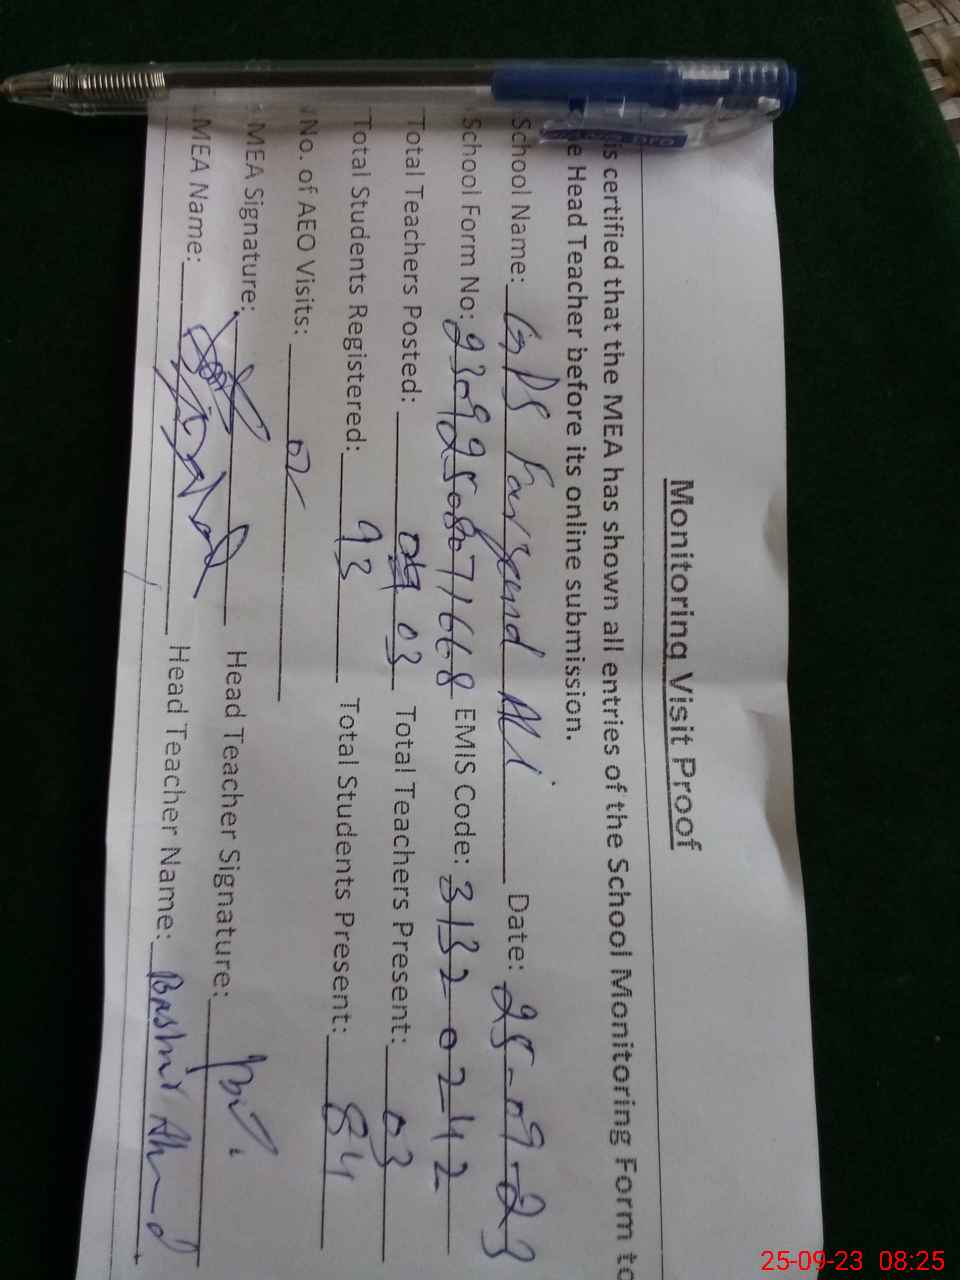 Monitoring Visit Proof
is certified that the MEA has shown all entries of the School Monitoring Form to
e Head Teacher before its online submission.
School Name: GPS Farzand Ali Date: 25-09-23
School Form No: EMIS Code: 31320242
Total Teachers Posted: 03 Total Teachers Present: 03
Total Students Registered: 93 Total Students Present: 84
No. of AEO Visits: 02
MEA Signature: Head Teacher Signature:
MEA Name: Head Teacher Name: Bashir Ahmad
25-09-23 08:25